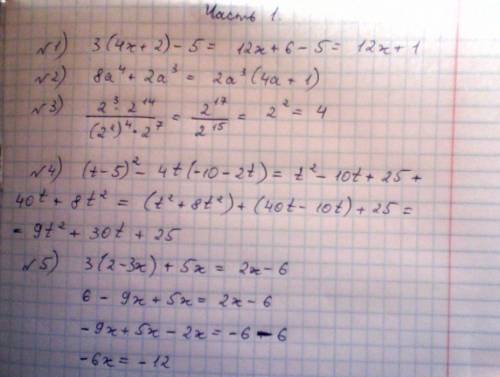 Часть 1.
№1) 3(4x+2)-5 = 12x+6-5 = 12x+1
№2) 8a⁴+2a³ = 2a³(4a+1)
№3) 2³·2¹⁴/(2²)⁴·2⁷ = 2¹⁷/2¹⁵ = 2² = 4
№4) (t-5)² - 4t(-10-2t) = t²-10t+25+
40t+8t² = (t²+8t²)+(40t-10t)+25 =
= 9t²+30t+25
№5) 3(2-3x)+5x = 2x-6
6-9x+5x = 2x-6
-9x+5x-2x = -6-6
-6x = -12